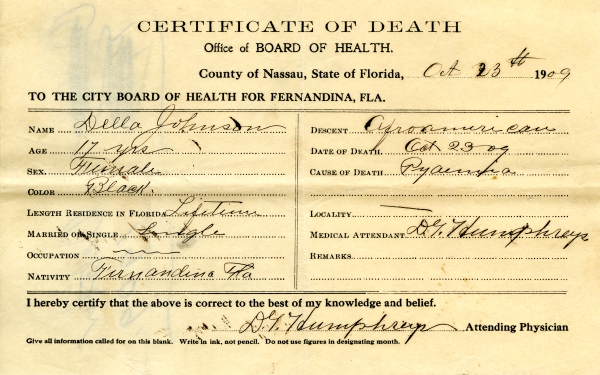 CERTIFICATE OF DEATH
Office of BOARD OF HEALTH.
County of Nassau, State of Florida, Oct 23th 1909
TO THE CITY BOARD OF HEALTH FOR FERNANDINA, FLA.
NAME Della Johnson
AGE 17 yrs
SEX Female
COLOR Black.
LENGTH RESIDENCE IN FLORIDA Lifetime
MARRIED OR SINGLE Single
OCCUPATION
NATIVITY Fernandina Fla
DESCENT Afroamerican
DATE OF DEATH Oct 23 09
CAUSE OF DEATH Pyaemia
LOCALITY
MEDICAL ATTENDANT D.G. Humphreys
REMARKS
I hereby certify that the above is correct to the best of my knowledge and belief.
D.G. Humphreys Attending Physician
Give all information called for on this blank. Write in ink, not pencil. Do not use figures in designating month.